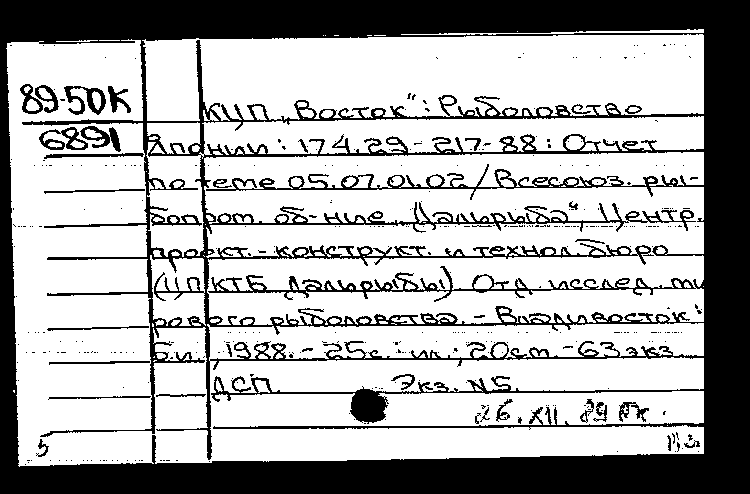 89-50К
6891
КЦП „Восток": Рыболовство
Японии: 174.29-217-88: Отчет
по теме 05.07.01.02/Всесоюз. ры-
бопром. об-ние „Дальрыба", Центр.
проект.-конструкт. и технол. бюро
(ЦПКТБ Дальрыбы) Отд. исслед. ми
рового рыболовства. - Владивосток:
Б.и., 1988. - 25с.: ил.; 20см. - 63экз.
ДСП. Экз. N5.
26.XII.89
5